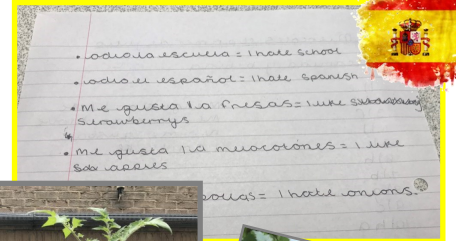 • odio la escuela = I hate school
• odio el español = I hate Spanish
• Me gusta la fresas = I like
strawberrys
• Me gusta la melocotones = I like
apples
= I hate onions.